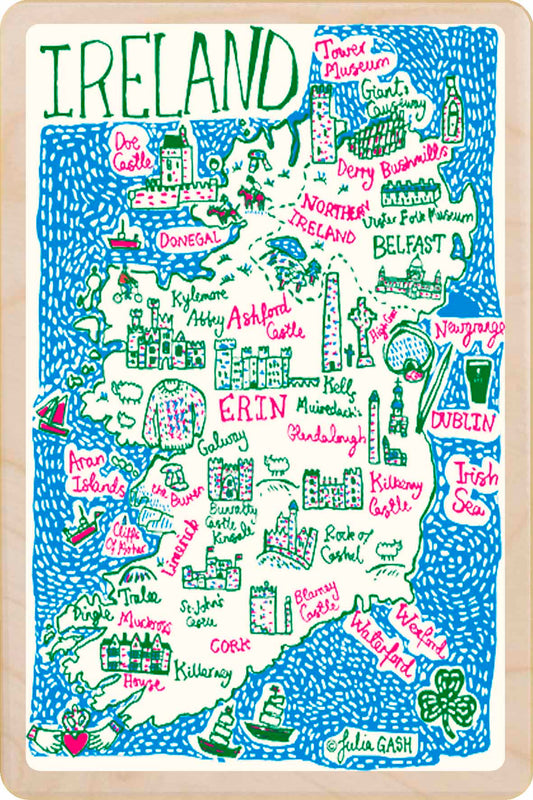 IRELAND
Tower
Museum
Giants
Causeway
Doe
Castle
Derry Bushmills
NORTHERN
IRELAND
Ulster Folk Museum
DONEGAL
BELFAST
Kylemore
Abbey
Ashford
Castle
High Cross
Newgrange
Kells
Muiredach's
ERIN
DUBLIN
Glendalough
Galway
Aran
Islands
the Burren
Bunratty
Castle
Kinsale
Kilkenny
Castle
Irish
Sea
Cliffs
Of Moher
Limerick
Rock of
Cashel
Tralee
Dingle
Muckross
House
St.John's
Castle
Blarney
Castle
CORK
Killarney
Waterford
Wexford
© Julia GASH